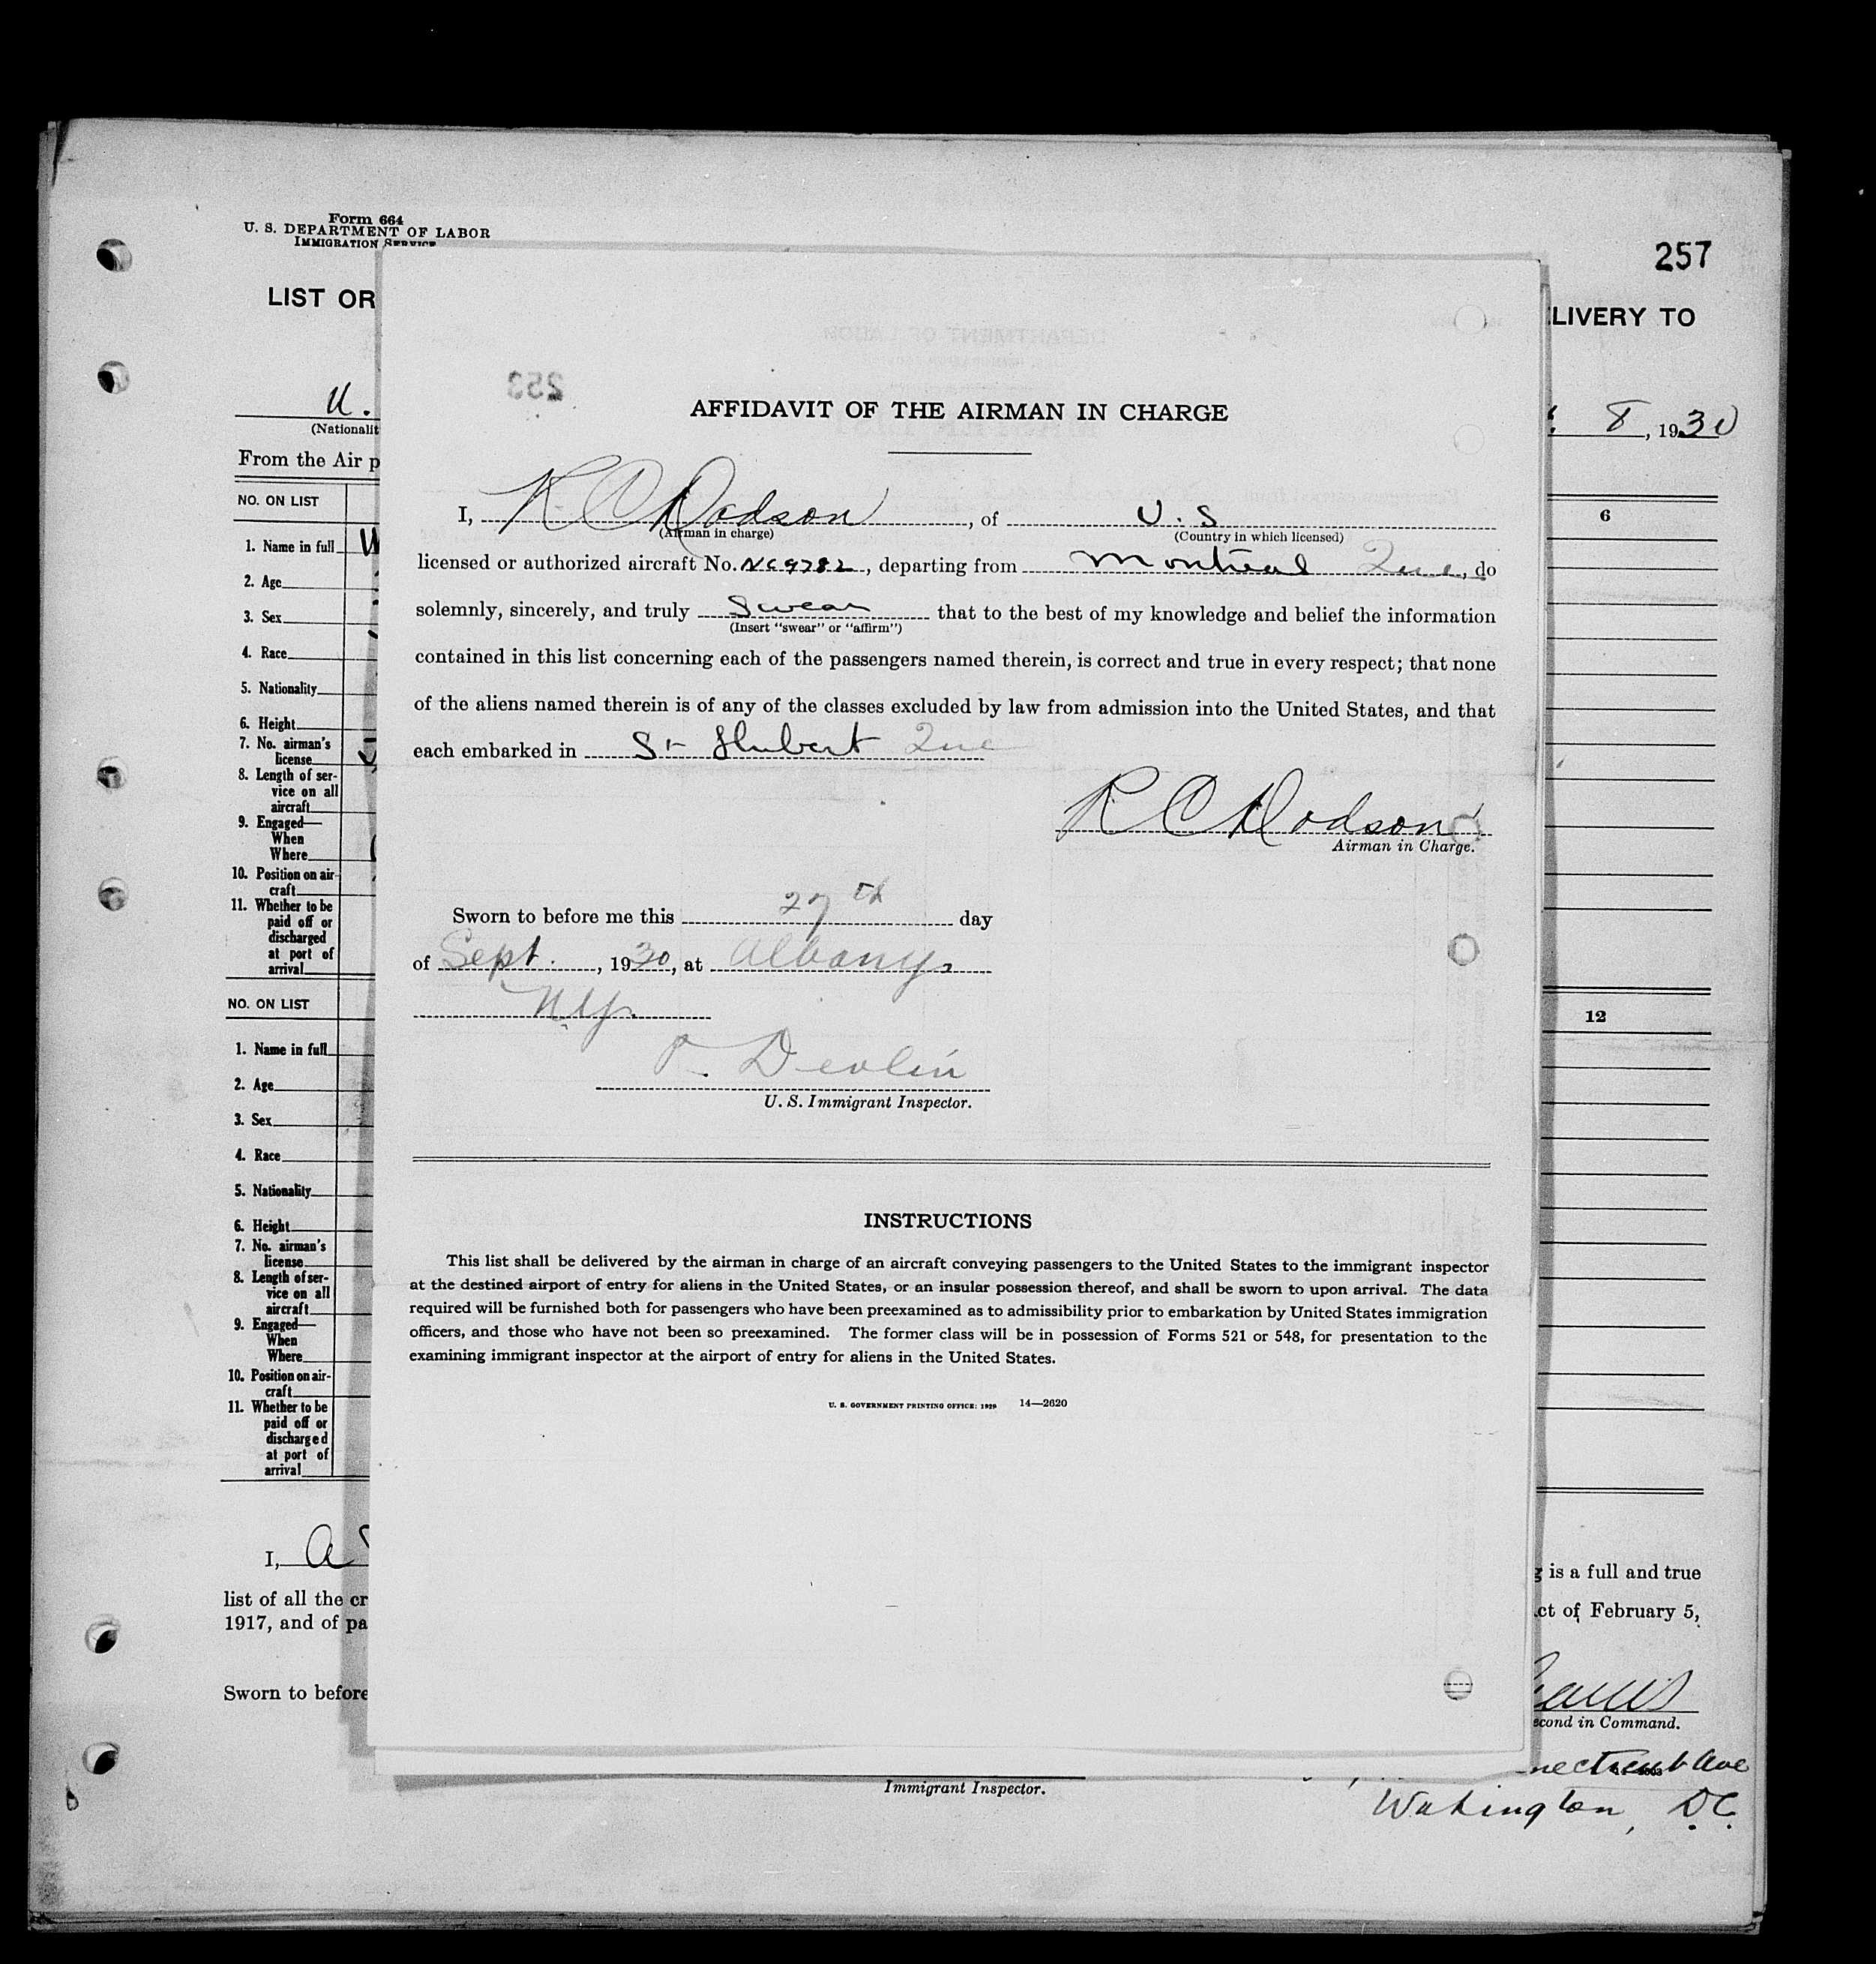 Form 664
U. S. DEPARTMENT OF LABOR
IMMIGRATION SERVICE
257
LIST OR
LIVERY TO
U.
(Nationalit
8, 1930
From the Air p
253
AFFIDAVIT OF THE AIRMAN IN CHARGE
I, R C Dodson, of U. S
(Airman in charge) (Country in which licensed)
licensed or authorized aircraft No. NC9782, departing from Montreal Que, do
solemnly, sincerely, and truly swear that to the best of my knowledge and belief the information
(Insert "swear" or "affirm")
contained in this list concerning each of the passengers named therein, is correct and true in every respect; that none
of the aliens named therein is of any of the classes excluded by law from admission into the United States, and that
each embarked in St Hubert Que
R C Dodson
Airman in Charge.
Sworn to before me this 27th day
of Sept., 1930, at Albany,
N.Y.
P. Devlin
U. S. Immigrant Inspector.
INSTRUCTIONS
This list shall be delivered by the airman in charge of an aircraft conveying passengers to the United States to the immigrant inspector
at the destined airport of entry for aliens in the United States, or an insular possession thereof, and shall be sworn to upon arrival. The data
required will be furnished both for passengers who have been preexamined as to admissibility prior to embarkation by United States immigration
officers, and those who have not been so preexamined. The former class will be in possession of Forms 521 or 548, for presentation to the
examining immigrant inspector at the airport of entry for aliens in the United States.
U. S. GOVERNMENT PRINTING OFFICE: 1929 14—2620
NO. ON LIST
6
1. Name in full
2. Age
3. Sex
4. Race
5. Nationality
6. Height
7. No. airman's
license
8. Length of ser-
vice on all
aircraft
9. Engaged—
When
Where
10. Position on air-
craft
11. Whether to be
paid off or
discharged
at port of
arrival
NO. ON LIST
12
1. Name in full
2. Age
3. Sex
4. Race
5. Nationality
6. Height
7. No. airman's
license
8. Length of ser-
vice on all
aircraft
9. Engaged—
When
Where
10. Position on air-
craft
11. Whether to be
paid off or
discharged
at port of
arrival
I, A
is a full and true
list of all the cr
ct of February 5,
1917, and of pa
Sworn to before
econd in Command.
Immigrant Inspector.
necticut Ave
Wahington, D.C.